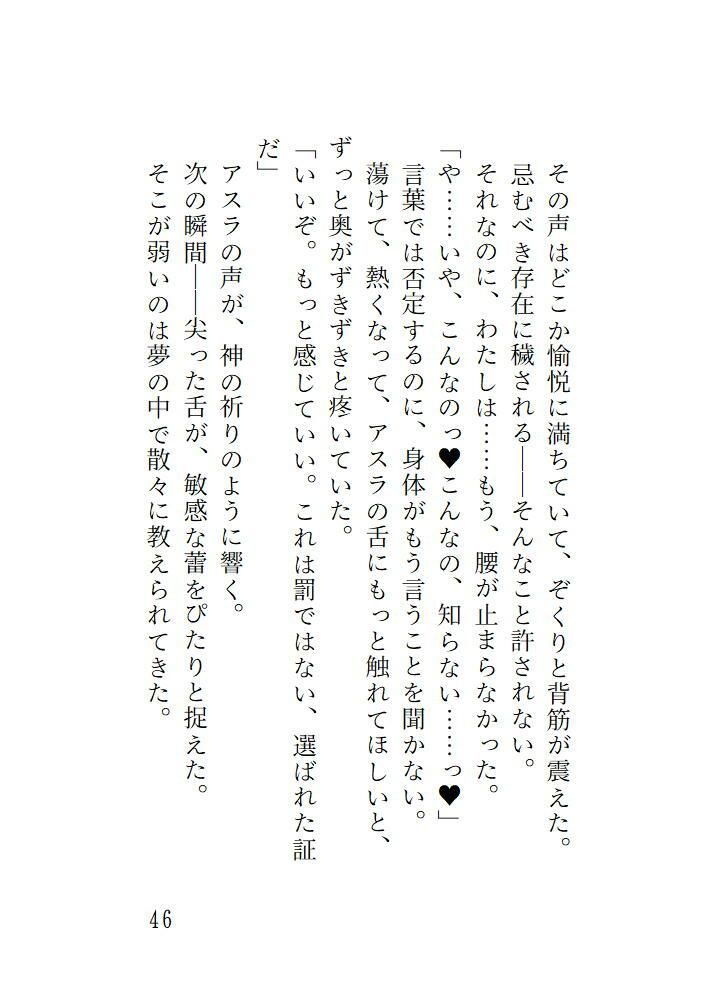 その声はどこか愉悦に満ちていて、ぞくりと背筋が震えた。
忌むべき存在に穢される――そんなこと許されない。
それなのに、わたしは……もう、腰が止まらなかった。
「や……いや、こんなのっ♥こんなの、知らない……っ♥」
言葉では否定するのに、身体がもう言うことを聞かない。
蕩けて、熱くなって、アスラの舌にもっと触れてほしいと、
ずっと奥がずきずきと疼いていた。
「いいぞ。もっと感じていい。これは罰ではない、選ばれた証
だ」
アスラの声が、神の祈りのように響く。
次の瞬間――尖った舌が、敏感な蕾をぴたりと捉えた。
そこが弱いのは夢の中で散々に教えられてきた。
46